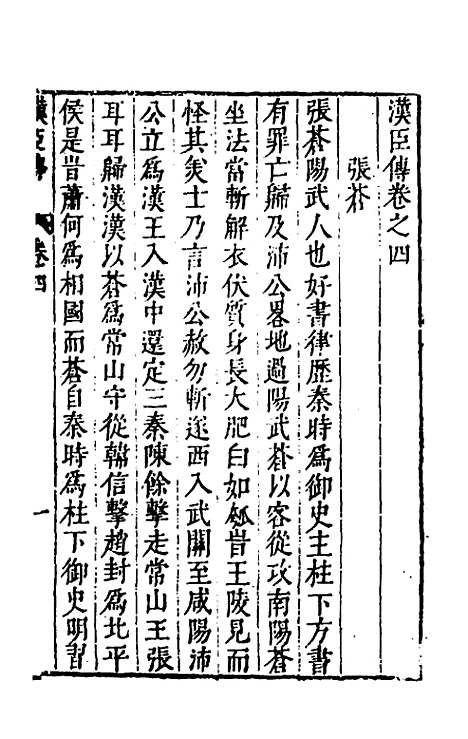 漢臣傳卷之四
張蒼
張蒼陽武人也好書律歷秦時爲御史主柱下方書
有罪亡歸及沛公畧地過陽武蒼以客從攻南陽蒼
坐法當斬解衣伏質身長大肥白如瓠旹王陵見而
怪其美士乃言沛公赦勿斬遂西入武關至咸陽沛
公立爲漢王入漢中還定三秦陳餘擊走常山王張
耳耳歸漢漢以蒼爲常山守從韓信擊趙封爲北平
侯是旹蕭何爲相國而蒼自秦時爲柱下御史明習
漢臣傳 卷四 一